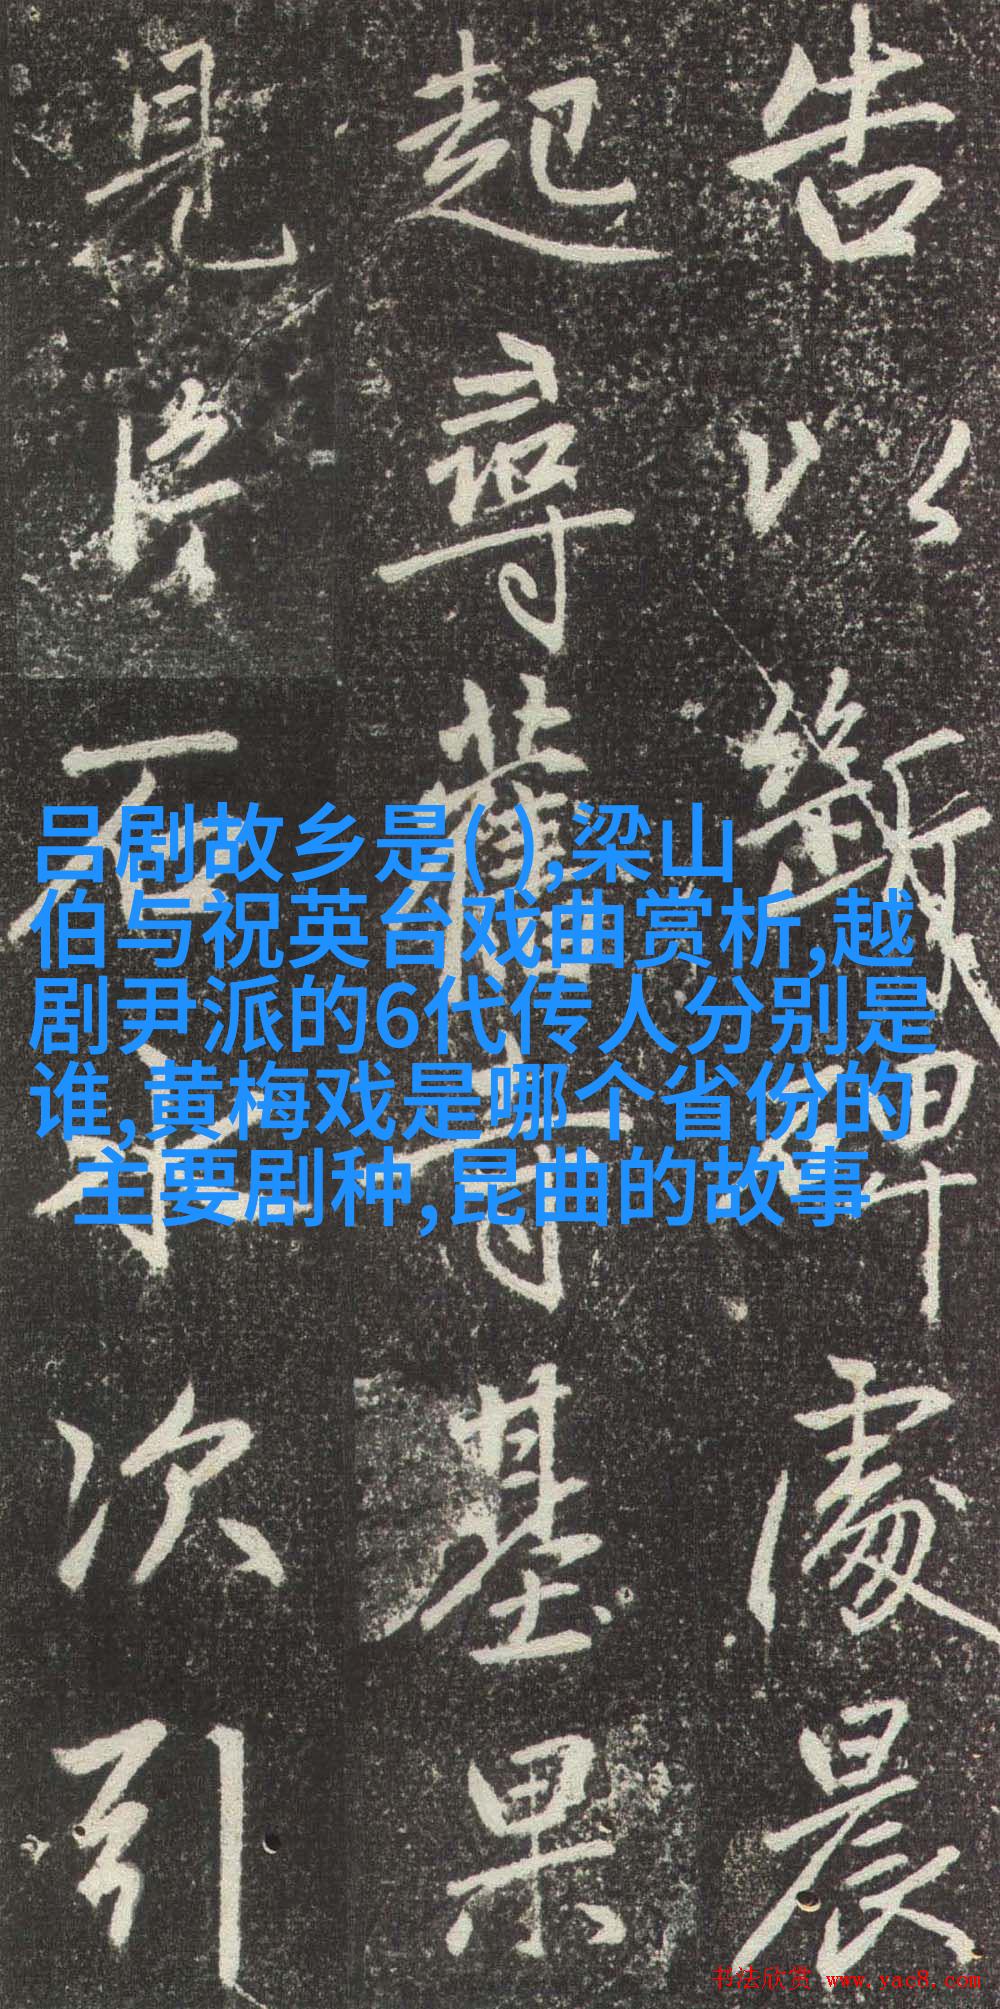 告以斷碑處晨
起尋舊寺基果
見片石次引
吕剧故乡是(),梁山
伯与祝英台戏曲赏析,越
剧尹派的6代传人分别是
谁,黄梅戏是哪个省份的
主要剧种,昆曲的故事
书法欣赏 www.yac8.com